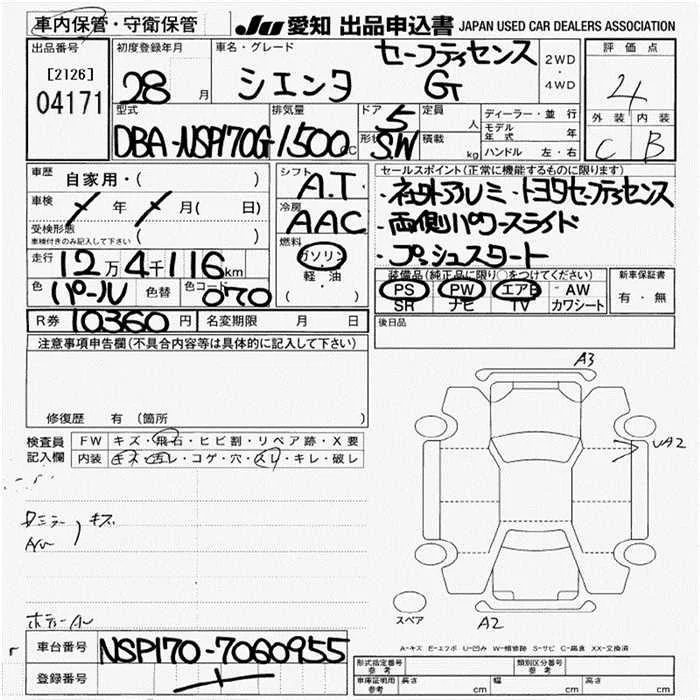 車内保管・守衛保管 JU 愛知 出品申込書 JAPAN USED CAR DEALERS ASSOCIATION
出品番号 初度登録年月 車名・グレード セーフティセンス 2WD・4WD 評価点
[2126] 04171 28 月 シエンタ G 4
型式 排気量 ドア 5 定員 人 ディーラー・並行 外装 内装
DBA-NSP170G 1500 cc 形状 S.W 積載 kg モデル年式 年 C B
ハンドル 左・右
車歴 自家用・( ) シフト A.T セールスポイント(正常に機能するものに限ります)
車検 年 月( 日) 冷房 AAC ・ネットアルミ・トヨタセーフティセンス
受検形態 ( ) ・両側パワースライド
車検付きのみ記入して下さい 燃料 ガソリン ・プッシュスタート
走行 12万4千116km 軽・油
色 パール 色替 色コード 070 ( )
装備品(純正品に限り○をつけてください) 新車保証書
PS PW エアB AW 有・無
SR ナビ TV カワシート
R券 10360円 名変期限 月 日 後日品
注意事項申告欄(不具合内容等は具体的に記入して下さい)
修復歴 有 (箇所 )
検査員記入欄 FW キズ・飛石・ヒビ割・リペア跡・X要
内装 キズ・汚レ・コゲ・穴・スレ・キレ・破レ
A3
キズ
スペア A2
A-キズ E-エクボ U-凹み W-補修跡 S-サビ C-腐食 XX-交換済
車台番号 NSP170-7060955
登録番号
形式指定番号 参考 類別区分番号 参考
車庫証明用 参考 長さ cm 幅 cm 高さ cm